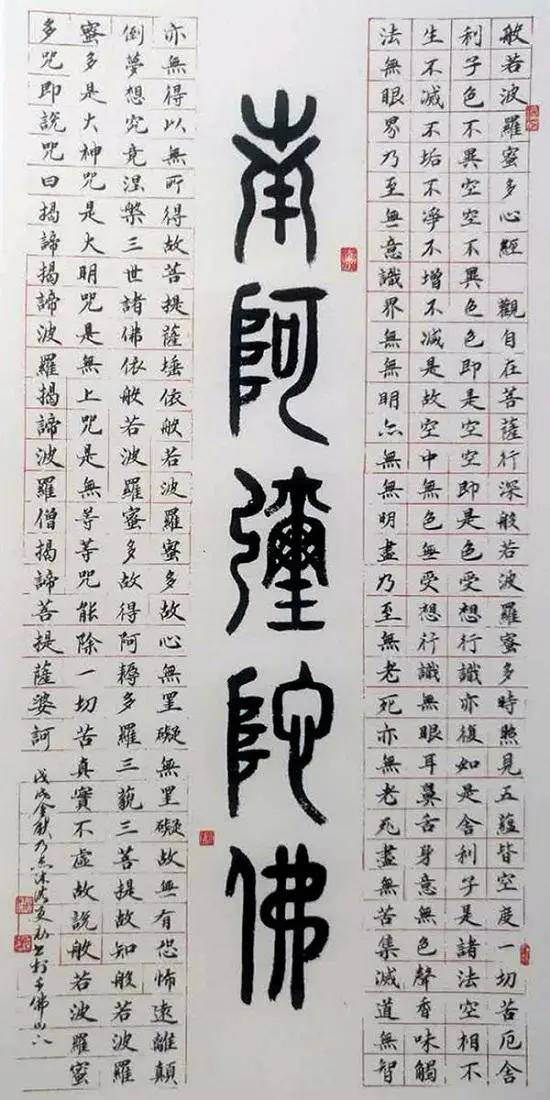 般若波羅蜜多心經 觀自在菩薩行深般若波羅蜜多時照見五蘊皆空度一切苦厄舍
利子色不異空空不異色色即是空空即是色受想行識亦復如是舍利子是諸法空相不
生不滅不垢不淨不增不減是故空中無色無受想行識無眼耳鼻舌身意無色聲香味觸
法無眼界乃至無意識界無無明亦無無明盡乃至無老死亦無老死盡無苦集滅道無智
南阿彌陀佛
亦無得以無所得故菩提薩埵依般若波羅蜜多故心無罣礙無罣礙故無有恐怖遠離顛
倒夢想究竟涅槃三世諸佛依般若波羅蜜多故得阿耨多羅三藐三菩提故知般若波羅
蜜多是大神咒是大明咒是無上咒是無等等咒能除一切苦真實不虛故說般若波羅蜜
多咒即說咒曰揭諦揭諦波羅揭諦波羅僧揭諦菩提薩婆訶
戊戌金秋